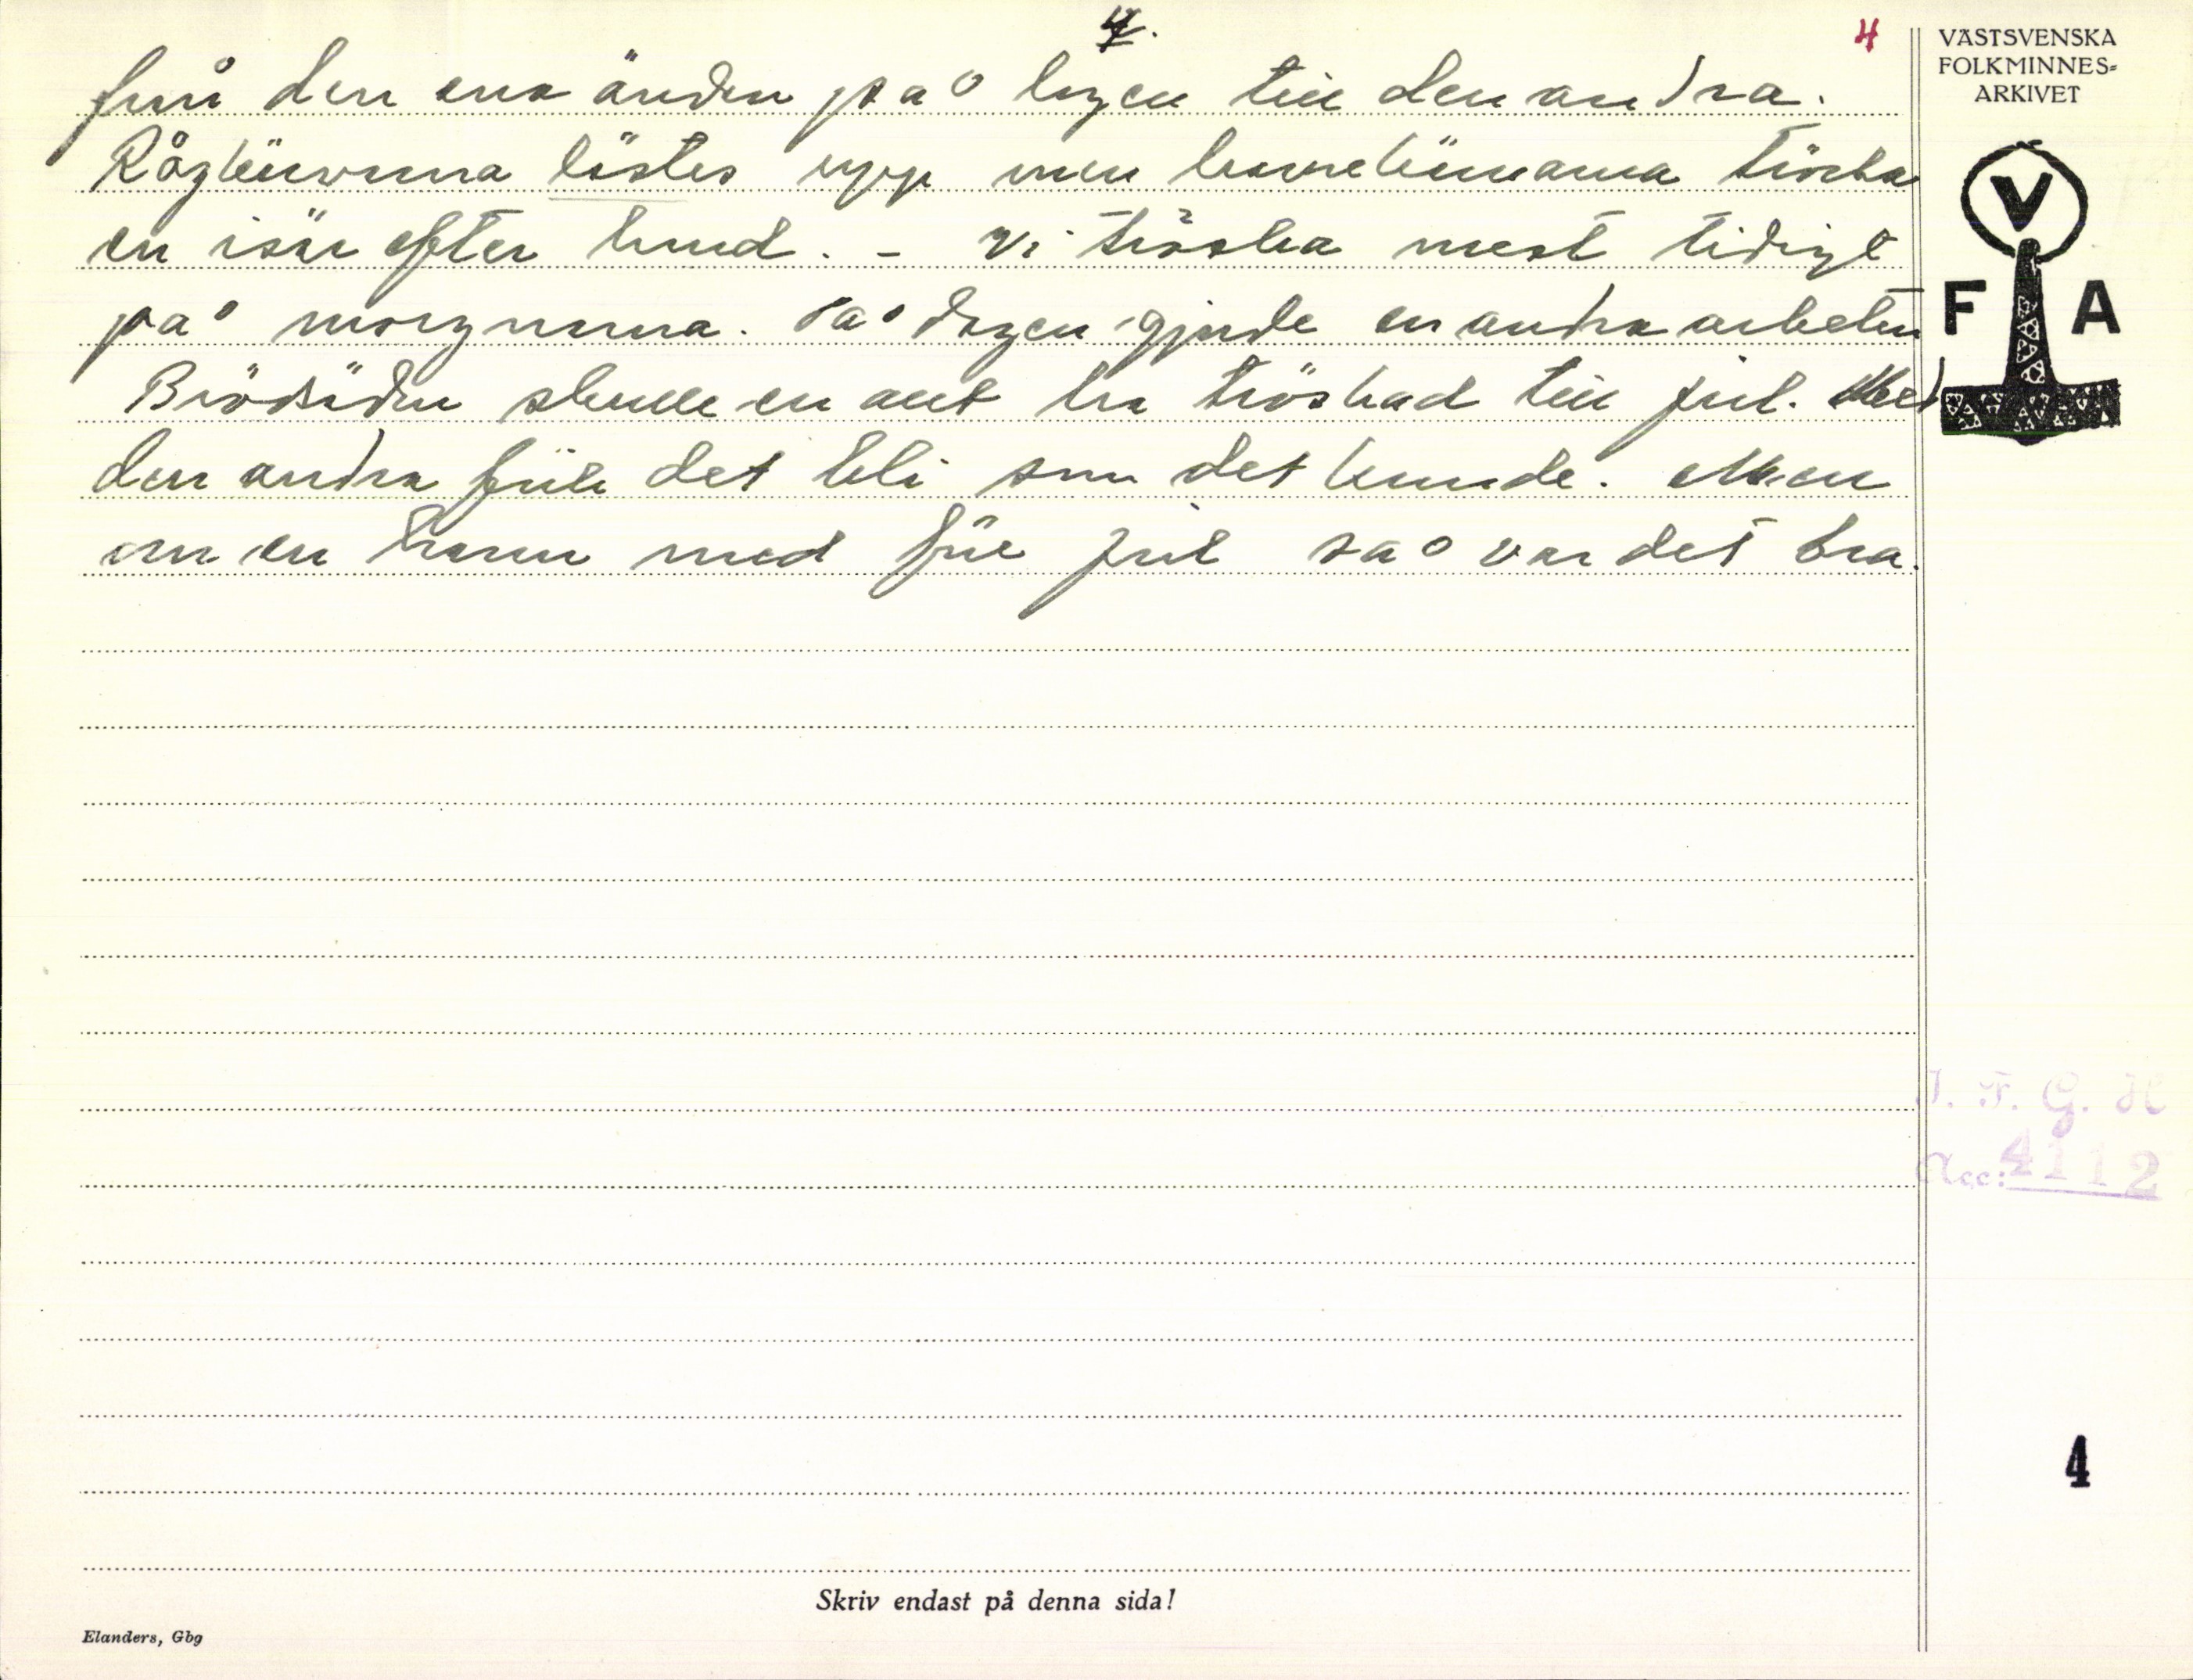 4.
4
från den ena änden på logen till den andra.
Rågkärvarna löstes upp men kornekärvarna tröska
en isär efter hand. – Vi tröska mest tidigt
på morgnarna. På dagen gjorde en andra arbeten
Brödsäden skulle en allt ha tröskad till jul. Med
den andra fick det bli som det kunde. Men
om en hann med före jul så var det bra.
VÄSTSVENSKA
FOLKMINNES=
ARKIVET
V
F A
I. F. G. H
Acc: 4112
4
Skriv endast på denna sida!
Elanders, Gbg